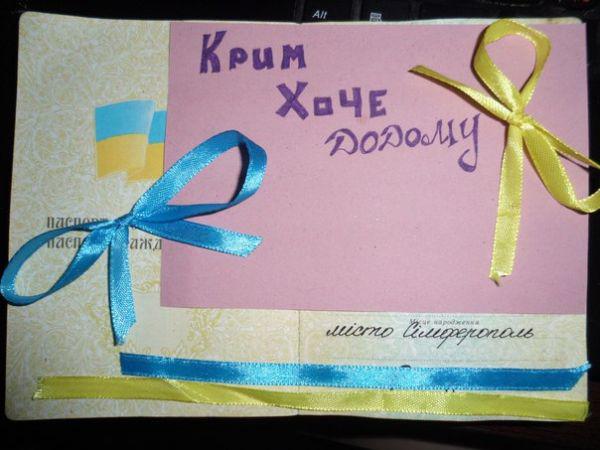 Alt
Крим
Хоче
додому
паспорт
Місце народження
місто Сімферополь